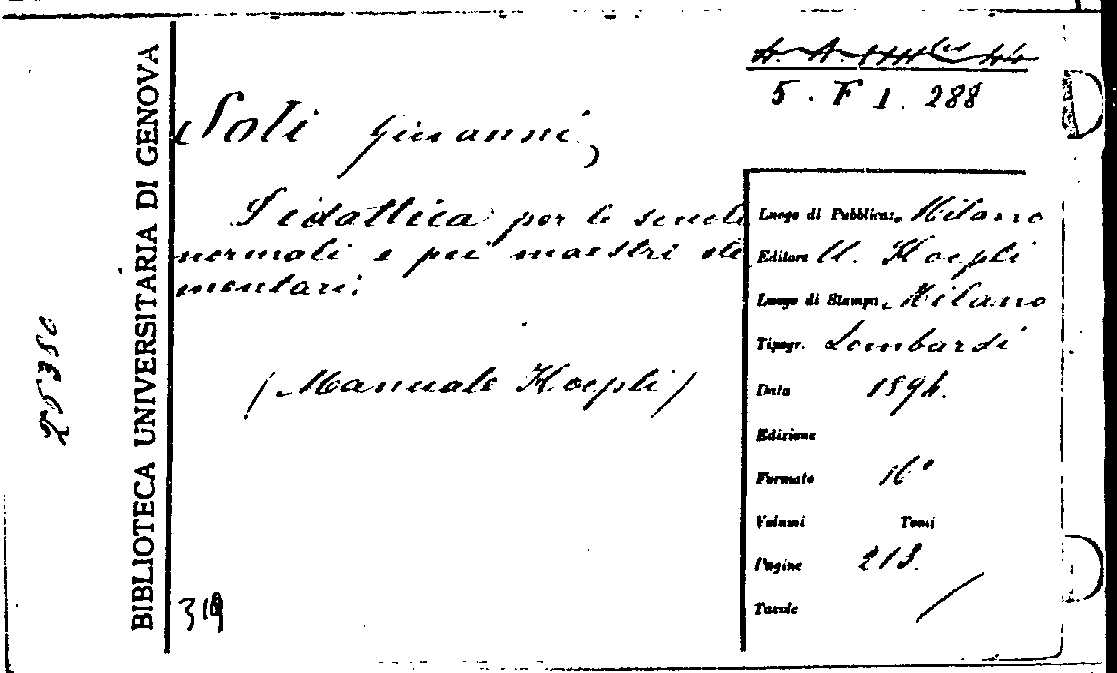 5. F 1. 288
BIBLIOTECA UNIVERSITARIA DI GENOVA
25380
Soli Giovanni,
Didattica per le scuole
normali e pei maestri ele
mentari.
(Manuale Hoepli)
319
Luogo di Pubblicaz. Milano
Editore U. Hoepli
Luogo di Stampa Milano
Tipogr. Lombardi
Data 1894.
Edizione
Formato 16°
Volumi Tomi
Pagine 213.
Tavole /